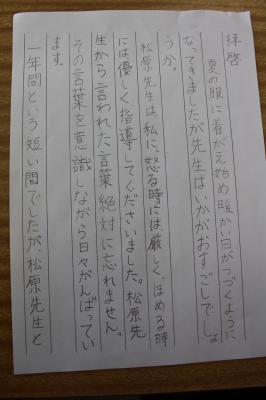 拝啓
夏の服に着がえ始め暖かい日がつづくように
なってきましたが先生はいかがおすごしでしょ
うか。
松原先生は、私に、怒る時には厳しく、ほめる時
には優しく指導してくださいました。松原先
生から言われた言葉絶対に忘れません。
その言葉を意識しながら日々がんばってい
ます。
一年間という短い間でしたが、松原先生と